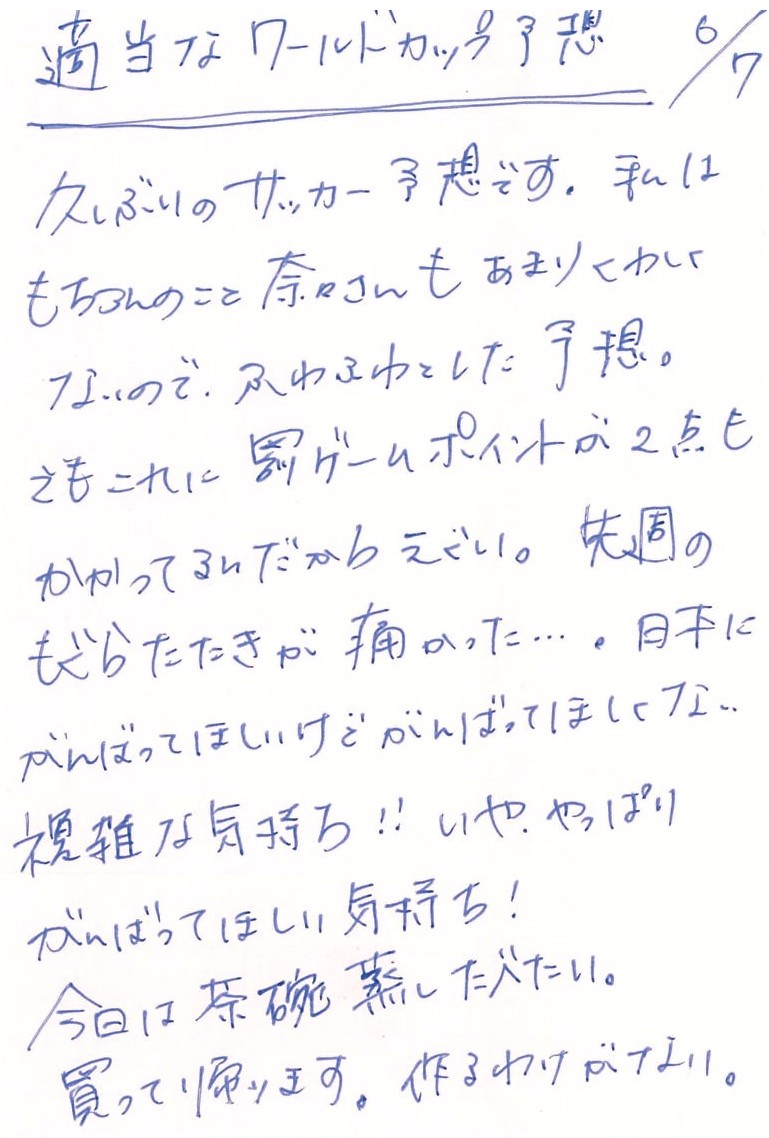 適当なワールドカップ予想 6/7
久しぶりのサッカー予想です。私は
もちろんのこと奈々さんもあまりくわしく
ないので、ふわふわとした予想。
でもこれに罰ゲームポイントが2点も
かかってるんだからえぐい。先週の
もぐらたたきが痛かった…。日本に
がんばってほしいけどがんばってほしくない
複雑な気持ち!!いや、やっぱり
がんばってほしい気持ち!
今日は茶碗蒸したべたい。
買って帰ります。作るわけがない。